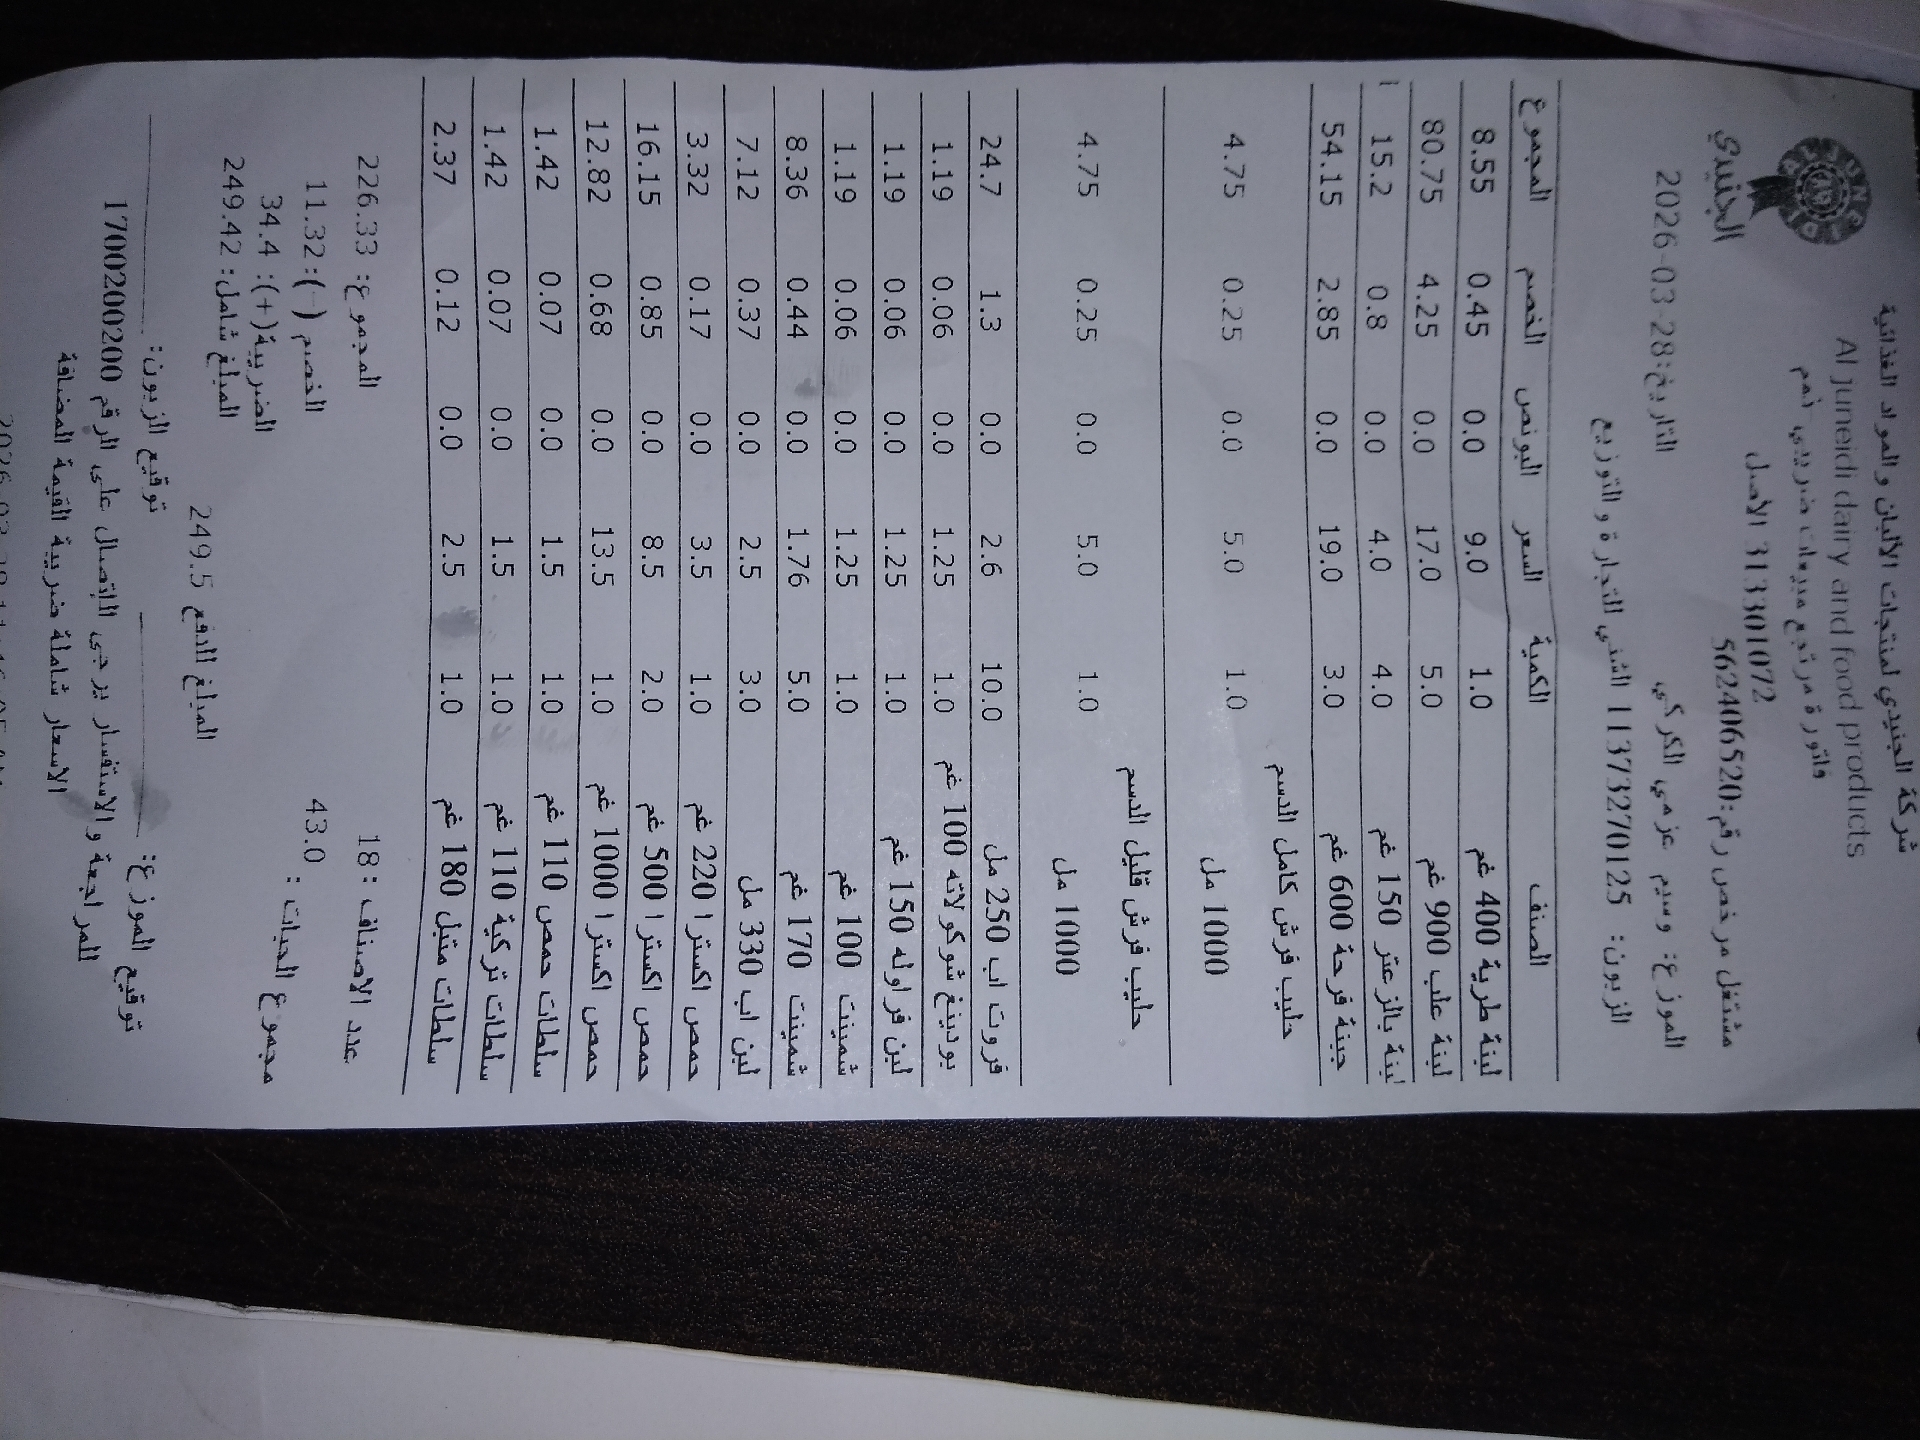 شركة الجنيدي لمنتجات الألبان والمواد الغذائية
Al juneidi dairy and food products
فاتورة مرتجع مبيعات ضريبي
313301072 الاصل
الجنيدي
مشتغل مرخص رقم:562406520
التاريخ:28-03-2026 الموزع: وسيم عزمي الكركي
الزبون: 11373270125 الشني التجارة والتوزيع
الصنف الكمية السعر البونص الخصم المجموع
لبنة طرية 400 غم 1.0 9.0 0.0 0.45 8.55
لبنة علب 900 غم 5.0 17.0 0.0 4.25 80.75
لبنة بالزعتر 150 غم 4.0 4.0 0.0 0.8 15.2
جبنة فرحة 600 غم 3.0 19.0 0.0 2.85 54.15
حليب فرش كامل الدسم
1000 مل 1.0 5.0 0.0 0.25 4.75
حليب فرش قليل الدسم
1000 مل 1.0 5.0 0.0 0.25 4.75
فروت اب 250 مل 10.0 2.6 0.0 1.3 24.7
بودينغ شوكولاته 100 غم 1.0 1.25 0.0 0.06 1.19
لبن فراوله 150 غم 1.0 1.25 0.0 0.06 1.19
شمينت 100 غم 1.0 1.25 0.0 0.06 1.19
شمينت 170 غم 5.0 1.76 0.0 0.44 8.36
لبن اب 330 مل 3.0 2.5 0.0 0.37 7.12
حمص اكسترا 220 غم 1.0 3.5 0.0 0.17 3.32
حمص اكسترا 500 غم 2.0 8.5 0.0 0.85 16.15
حمص اكسترا 1000 غم 1.0 13.5 0.0 0.68 12.82
سلطات حمص 110 غم 1.0 1.5 0.0 0.07 1.42
سلطات تركية 110 غم 1.0 1.5 0.0 0.07 1.42
سلطات متبل 180 غم 1.0 2.5 0.0 0.12 2.37
عدد الاصناف :18 المجموع: 226.33
مجموع الحبات : 43.0 الخصم (-):11.32
الضريبة(+): 34.4
المبلغ شامل: 249.42
المبلغ للدفع 249.5
توقيع الموزع: توقيع الزبون:
للمراجعة والاستفسار يرجى الاتصال على الرقم 1700200200
الاسعار شاملة ضريبة القيمة المضافة